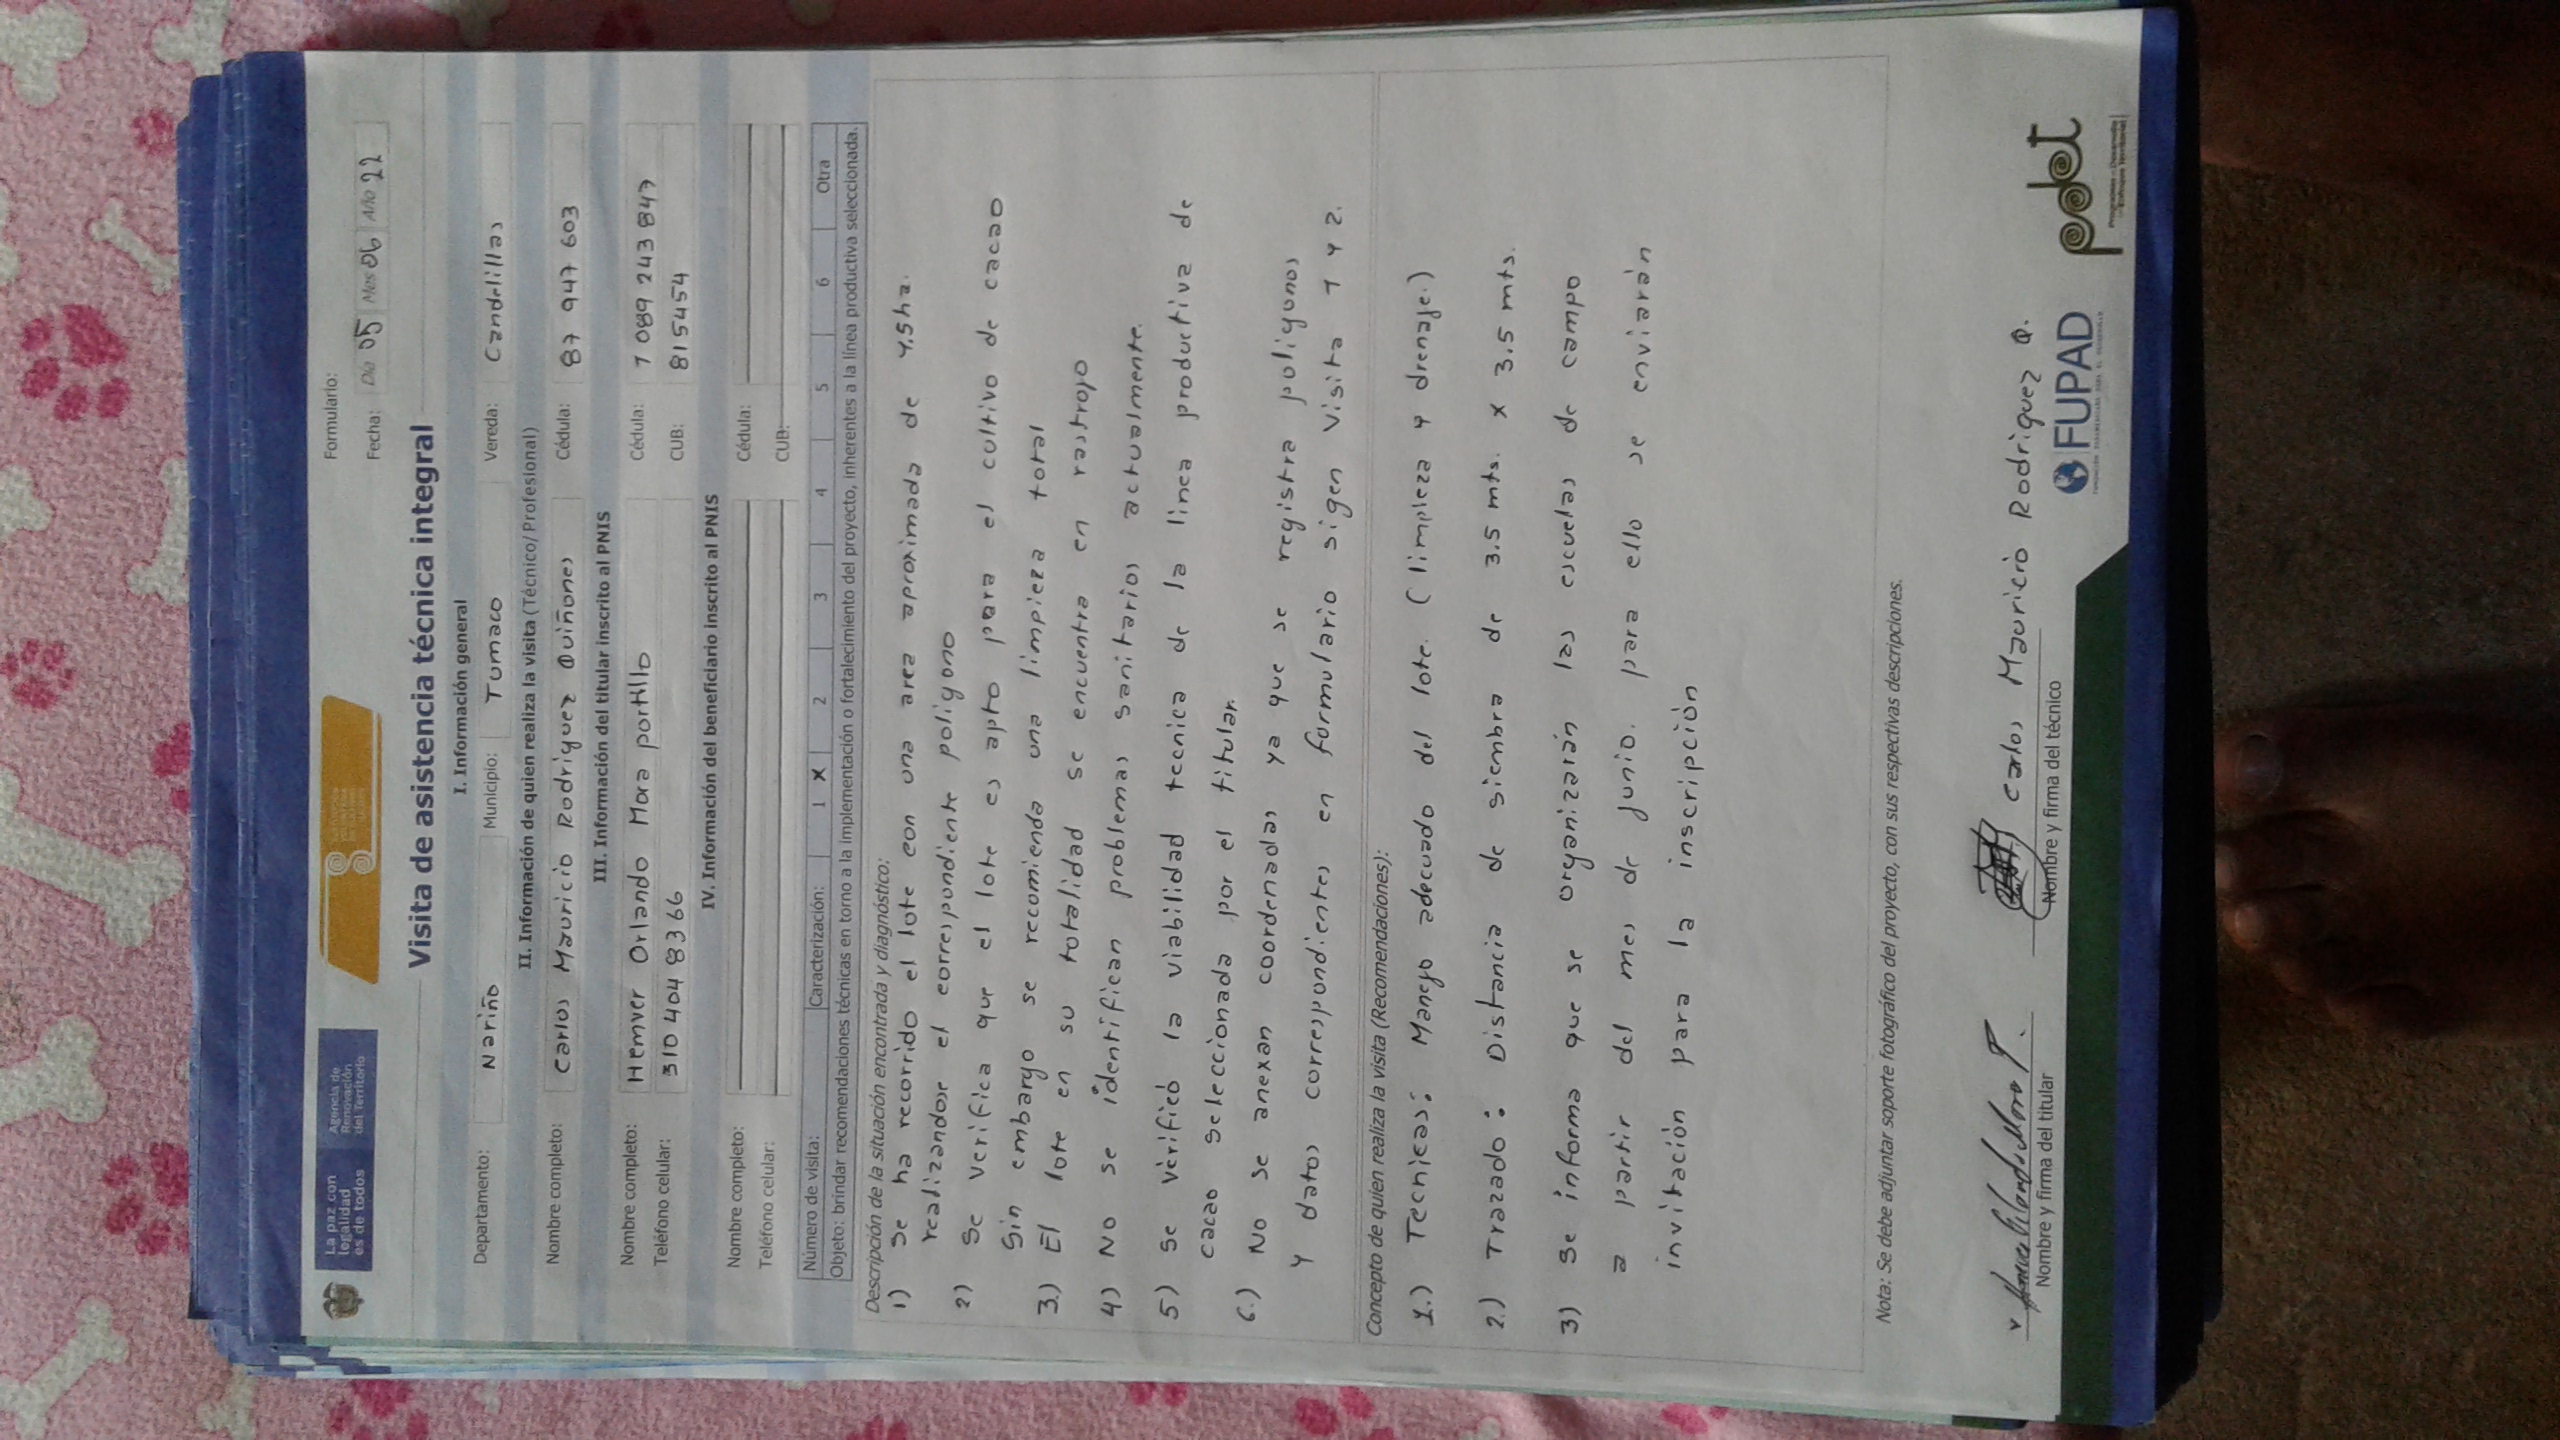 La paz con
legalidad
es de todos
Agencia de
Renovación
del Territorio
Formulario:
Fecha: Día 05 Mes 06 Año 22
Visita de asistencia técnica integral
I. Información general
Departamento: Nariño Municipio: Tumaco Vereda: Candelillas
II. Información de quien realiza la visita (Técnico/ Profesional)
Nombre completo: Carlos Mauricio Rodriguez Quiñones Cédula: 87 947 603
III. Información del titular inscrito al PNIS
Nombre completo: Hemver Orlando Mora portillo Cédula: 1 089 243 847
Teléfono celular: 310 404 83 66 CUB: 815454
IV. Información del beneficiario inscrito al PNIS
Nombre completo: Cédula:
Teléfono celular: CUB:
Número de visita: Caracterización: 1 X 2 3 4 5 6 Otra
Objeto: brindar recomendaciones técnicas en torno a la implementación o fortalecimiento del proyecto, inherentes a la línea productiva seleccionada.
Descripción de la situación encontrada y diagnóstico:
1) Se ha recorrido el lote con una area aproximada de 4.5ha.
realizandose el correspondiente poligono
2) Se verifica que el lote es apto para el cultivo de cacao
Sin embargo se recomienda una limpieza total
3.) El lote en su totalidad se encuentra en rastrojo
4) No se identifican problemas sanitarios actualmente.
5) Se verificó la viabilidad tecnica de la linea productiva de
cacao seleccionada por el titular.
6.) No se anexan coordenadas ya que se registra poligonos
y datos correspondientes en formulario sigen visita 1 y 2.
Concepto de quien realiza la visita (Recomendaciones):
1.) Tecnicas: Manejo adecuado del lote. (limpieza y drenaje.)
2.) Trazado: Distancia de siembra de 3.5 mts. x 3.5 mts.
3) Se informa que se organizarán las escuelas de campo
a partir del mes de junio. para ello se enviarán
invitación para la inscripción
Nota: Se debe adjuntar soporte fotográfico del proyecto, con sus respectivas descripciones.
Carlos Mauricio Rodriguez Q.
Nombre y firma del titular
Nombre y firma del técnico
FUPAD
pdet
Programas de Desarrollo
con Enfoque Territorial